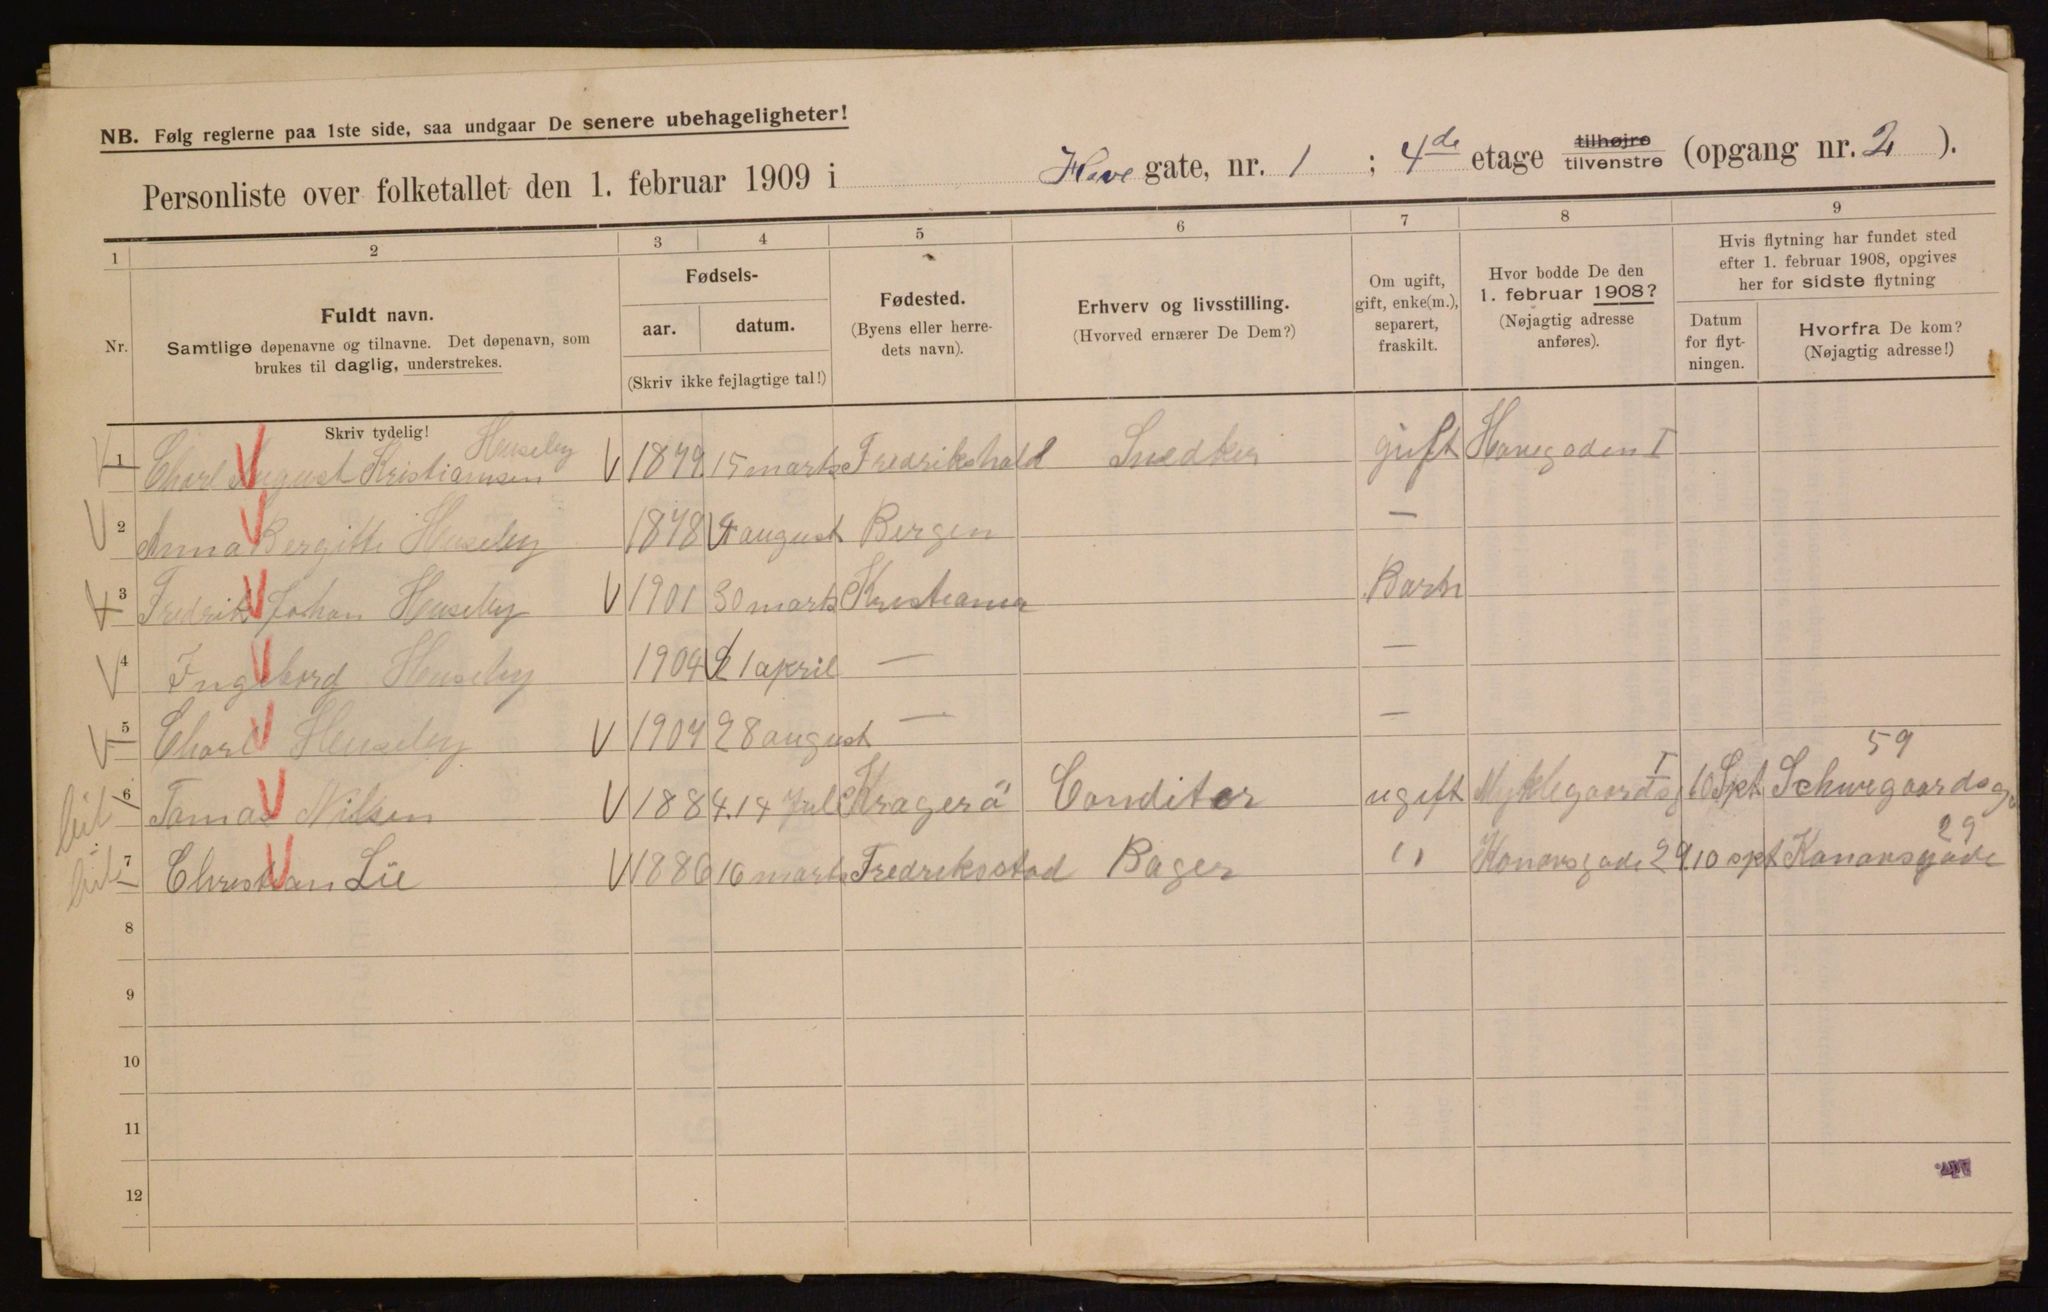 NB. Følg reglerne paa 1ste side, saa undgaar De senere ubehageligheter!
Personliste over folketallet den 1. februar 1909 i Have gate, nr. 1 ; 4de etage tilhøjre tilvenstre (opgang nr. 2 ).
1 2 3 4 5 6 7 8 9
Nr.
Fuldt navn.
Samtlige døpenavne og tilnavne. Det døpenavn, som
brukes til daglig, understrekes.
Skriv tydelig!
Fødsels-
aar. datum.
(Skriv ikke fejlagtige tal!)
Fødested.
(Byens eller herre-
dets navn).
Erhverv og livsstilling.
(Hvorved ernærer De Dem?)
Om ugift,
gift, enke(m.),
separert,
fraskilt.
Hvor bodde De den
1. februar 1908?
(Nøjagtig adresse
anføres).
Hvis flytning har fundet sted
efter 1. februar 1908, opgives
her for sidste flytning
Datum
for flyt-
ningen.
Hvorfra De kom?
(Nøjagtig adresse!)
Huseby
1 Charl August Kristiansen V 1879 15 marts Fredrikshald Snedker gift Havegaden I
2 Anna Bergitte Huseby 1878 4 august Bergen —
3 Fredrik Johan Huseby V 1901 30 marts Kristiania Barn
4 Ingeborg Huseby 1904 21 april — —
5 Charl Huseby V 1907 28 august — —
59
6 Tomas Nilsen V 1884 14 Juli Kragerö Conditor ugift I 10 Spt Schwegaardsg
29
7 Christian Lie V 1886 16 marts Fredriksstad Bager " 29 10 spt
8
9
10
11
12